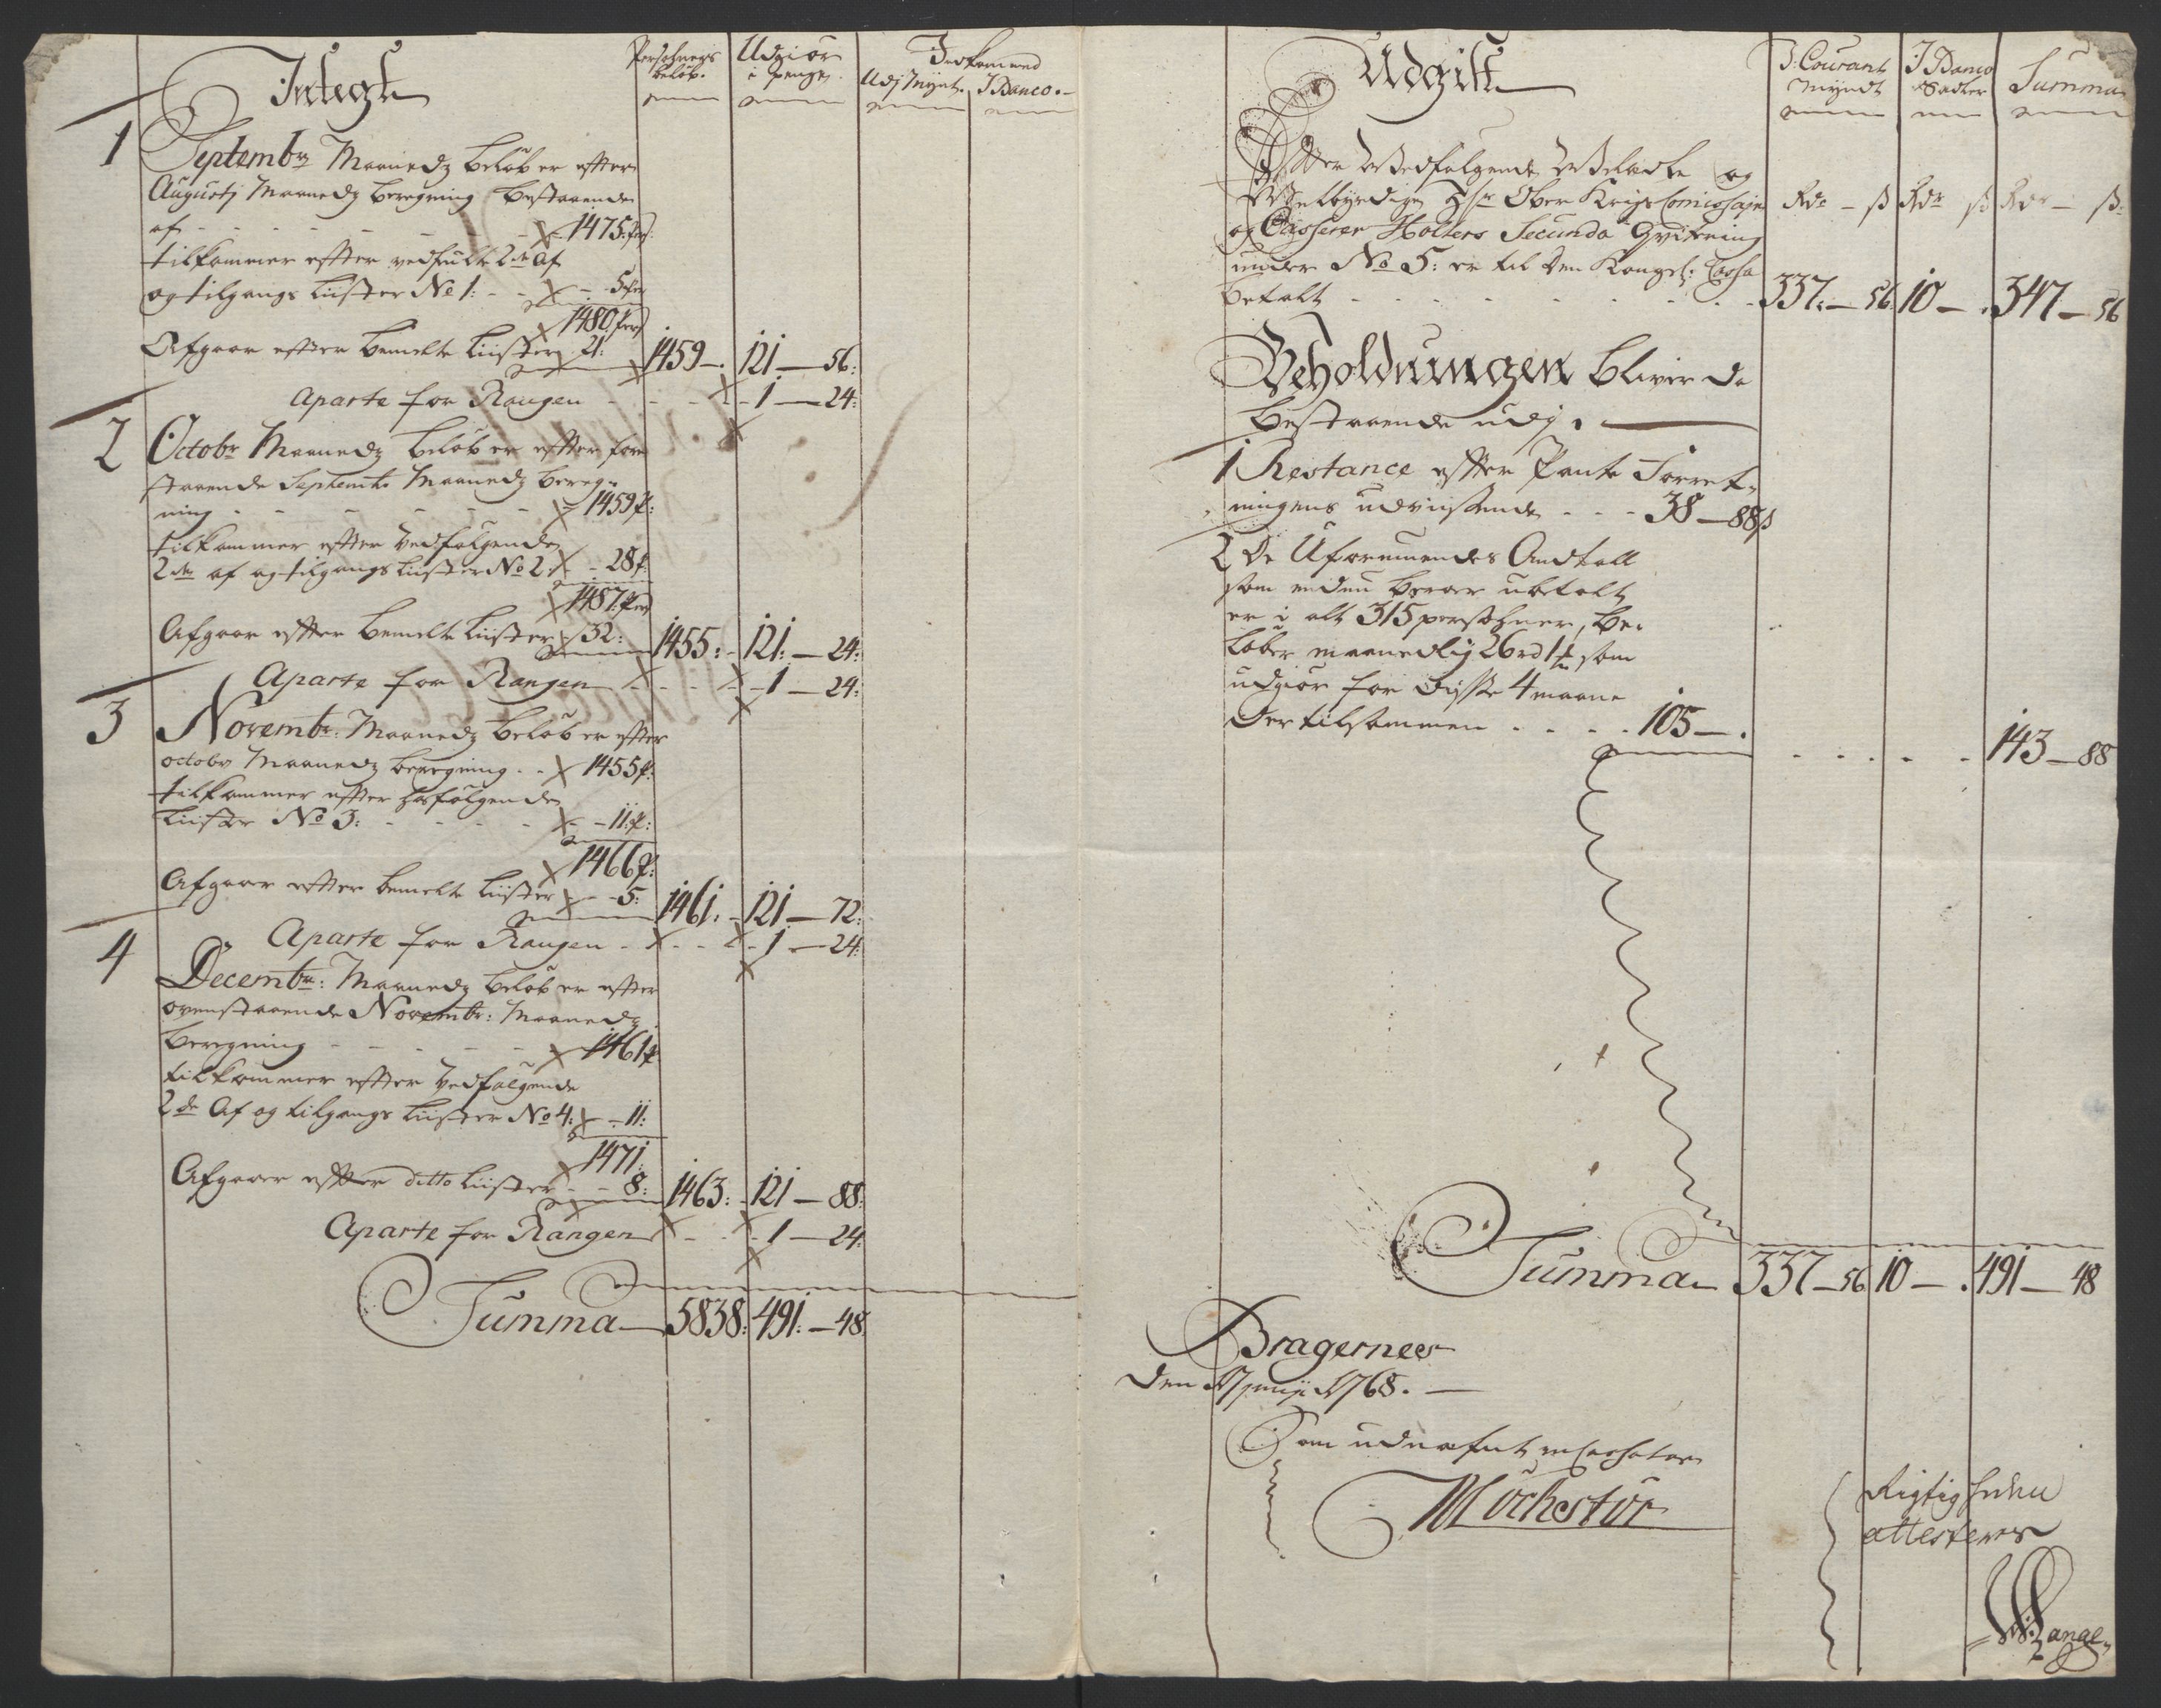 Indtegt
Persohnegs beløb.
Udgiør i penge.
Indkommed
Udj Mynt. I Banco.
1
Septembr Maaneds beløb er efter
Augustj Maaneds beregning bestaaende
af - - - - - 1475 pers:
tilkommer efter vedfulte 2de Af
og tilgangs Liister No 1: - - 5 per
1480 pers
Afgaar efter bemelte Liister 21: 1459 - 121 - 56:
Aparte for Rangen - - - 1 - 24:
2
Octobr Maaneds beløb er efter fore
staaende Septembr Maaneds bereg-
ning - - - - - 1459 p:
tilkommer efter vedfølgende
2de af og tilgangs Liister No 2 - 28 p:
1487 pers
Afgaar efter bemelte Liister 32: 1455: - 121: - 24:
Aparte for Rangen - - - 1 - 24:
3
Novembr: Maaneds beløb er efter
octobr Maaneds beregning - - 1455 p:
tilkommer efter hosfølgende
Liister No 3: - - - - 11: p:
1466 p:
Afgaar efter bemelte Liister - 5: 1461: - 121 - 72:
Aparte for Rangen - - - 1 - 24:
4
Decembr: Maaneds beløb er efter
ovenstaaende Novembr: Maaneds
beregning - - - - - 1461 p
tilkommer efter vedfølgende
2de Af og tilgangs Liister No 4: - 11:
1471:
Afgaar efter ditto Liister - - 8: 1463: - 121 - 88:
Aparte for Rangen - - - 1 - 24:
Summa 5838: 491: - 48.
Udgift
I Courant Myndt
I Banco Sedler
Summa
Efter vedfølgende og
Velbyrdige Hr Ober Krigs Comissaire Rdr - ß Rdr ß Rdr - ß:
og Casserer Holters Secunda Qvitering
under No 5: er til den Kongel: Cassa
betalt - - - - - - 337: - 56. 10 - . 347 - 56
Beholdningen bliver da
bestaaende udj.
1 Restance efter Pante Forret-
ningens udviisende - - - 38 - 88 ß
2 De Uformuendes Andtall
som endnu beroer ubetalt
er i alt 315 persohner, be-
løber maanedlig 26 rd 1 som
udgiør for disse 4 maane
der tilsammen - - - . 105 - . - - - - - 143 - 88
Summa 337 - 56 10 - . 491 - 48
Bragernes
den 17 1768. -
Som udnefnt
Möchestür
Rigtig
attesteres
Lange